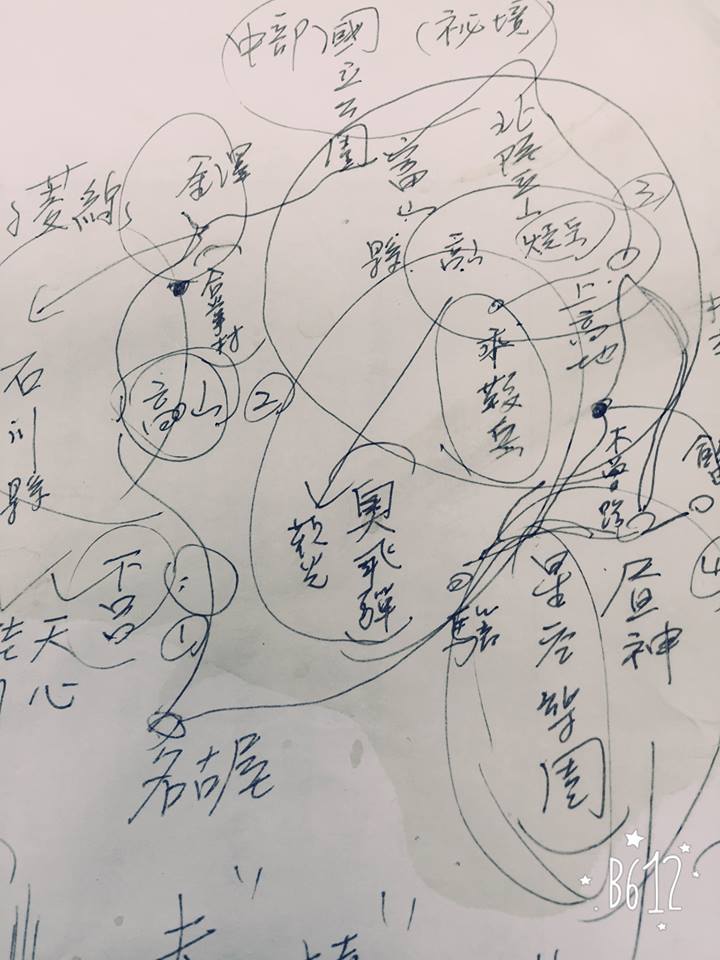 (中部)國立公園
(祕境)
金澤
富山縣
北陸立山
燒岳
3
1
高山
上高地
合掌村
乘鞍岳
石川縣
高山
2
木曾路
奧飛驒
觀光
下呂
1
星空樂園
昼神
4
天心
名古屋
B612